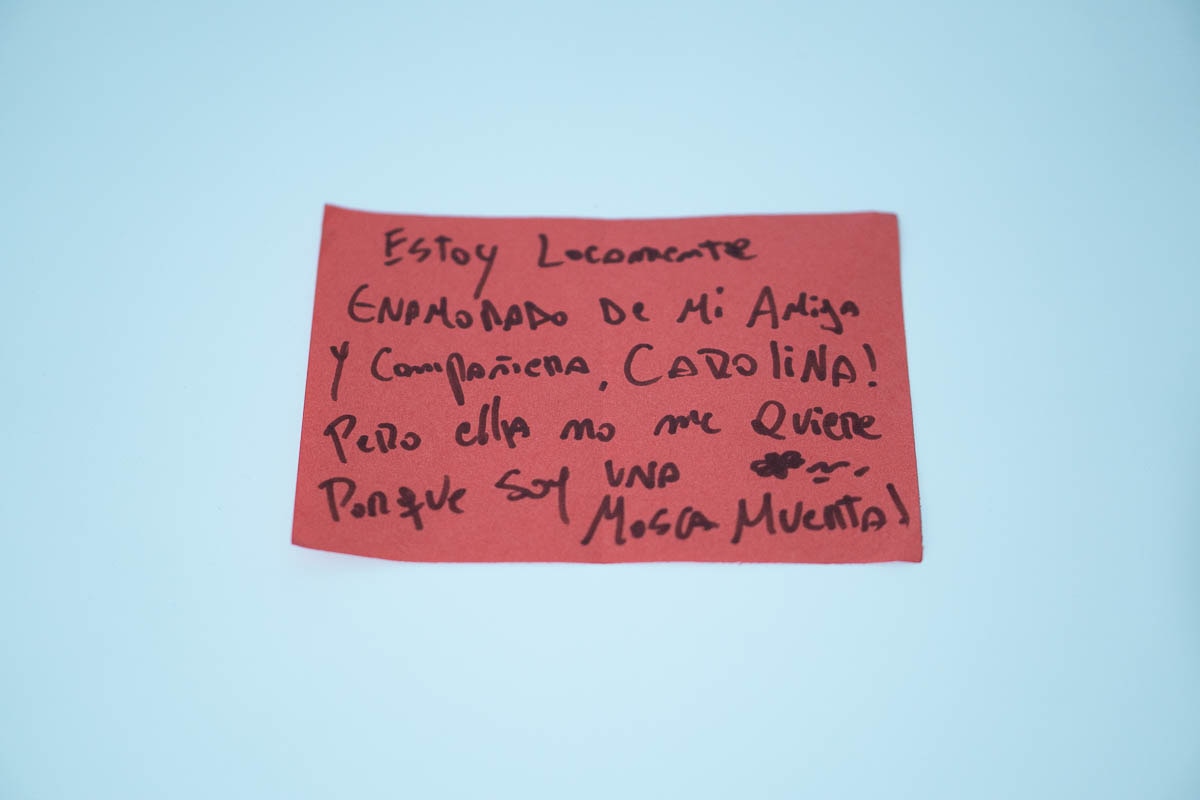 Estoy Locamente
ENAMORADO DE Mi Amiga
Y Compañera, CAROLINA!
Pero ella no me Quiere
Porque Soy UNA
Mosca Muerta!